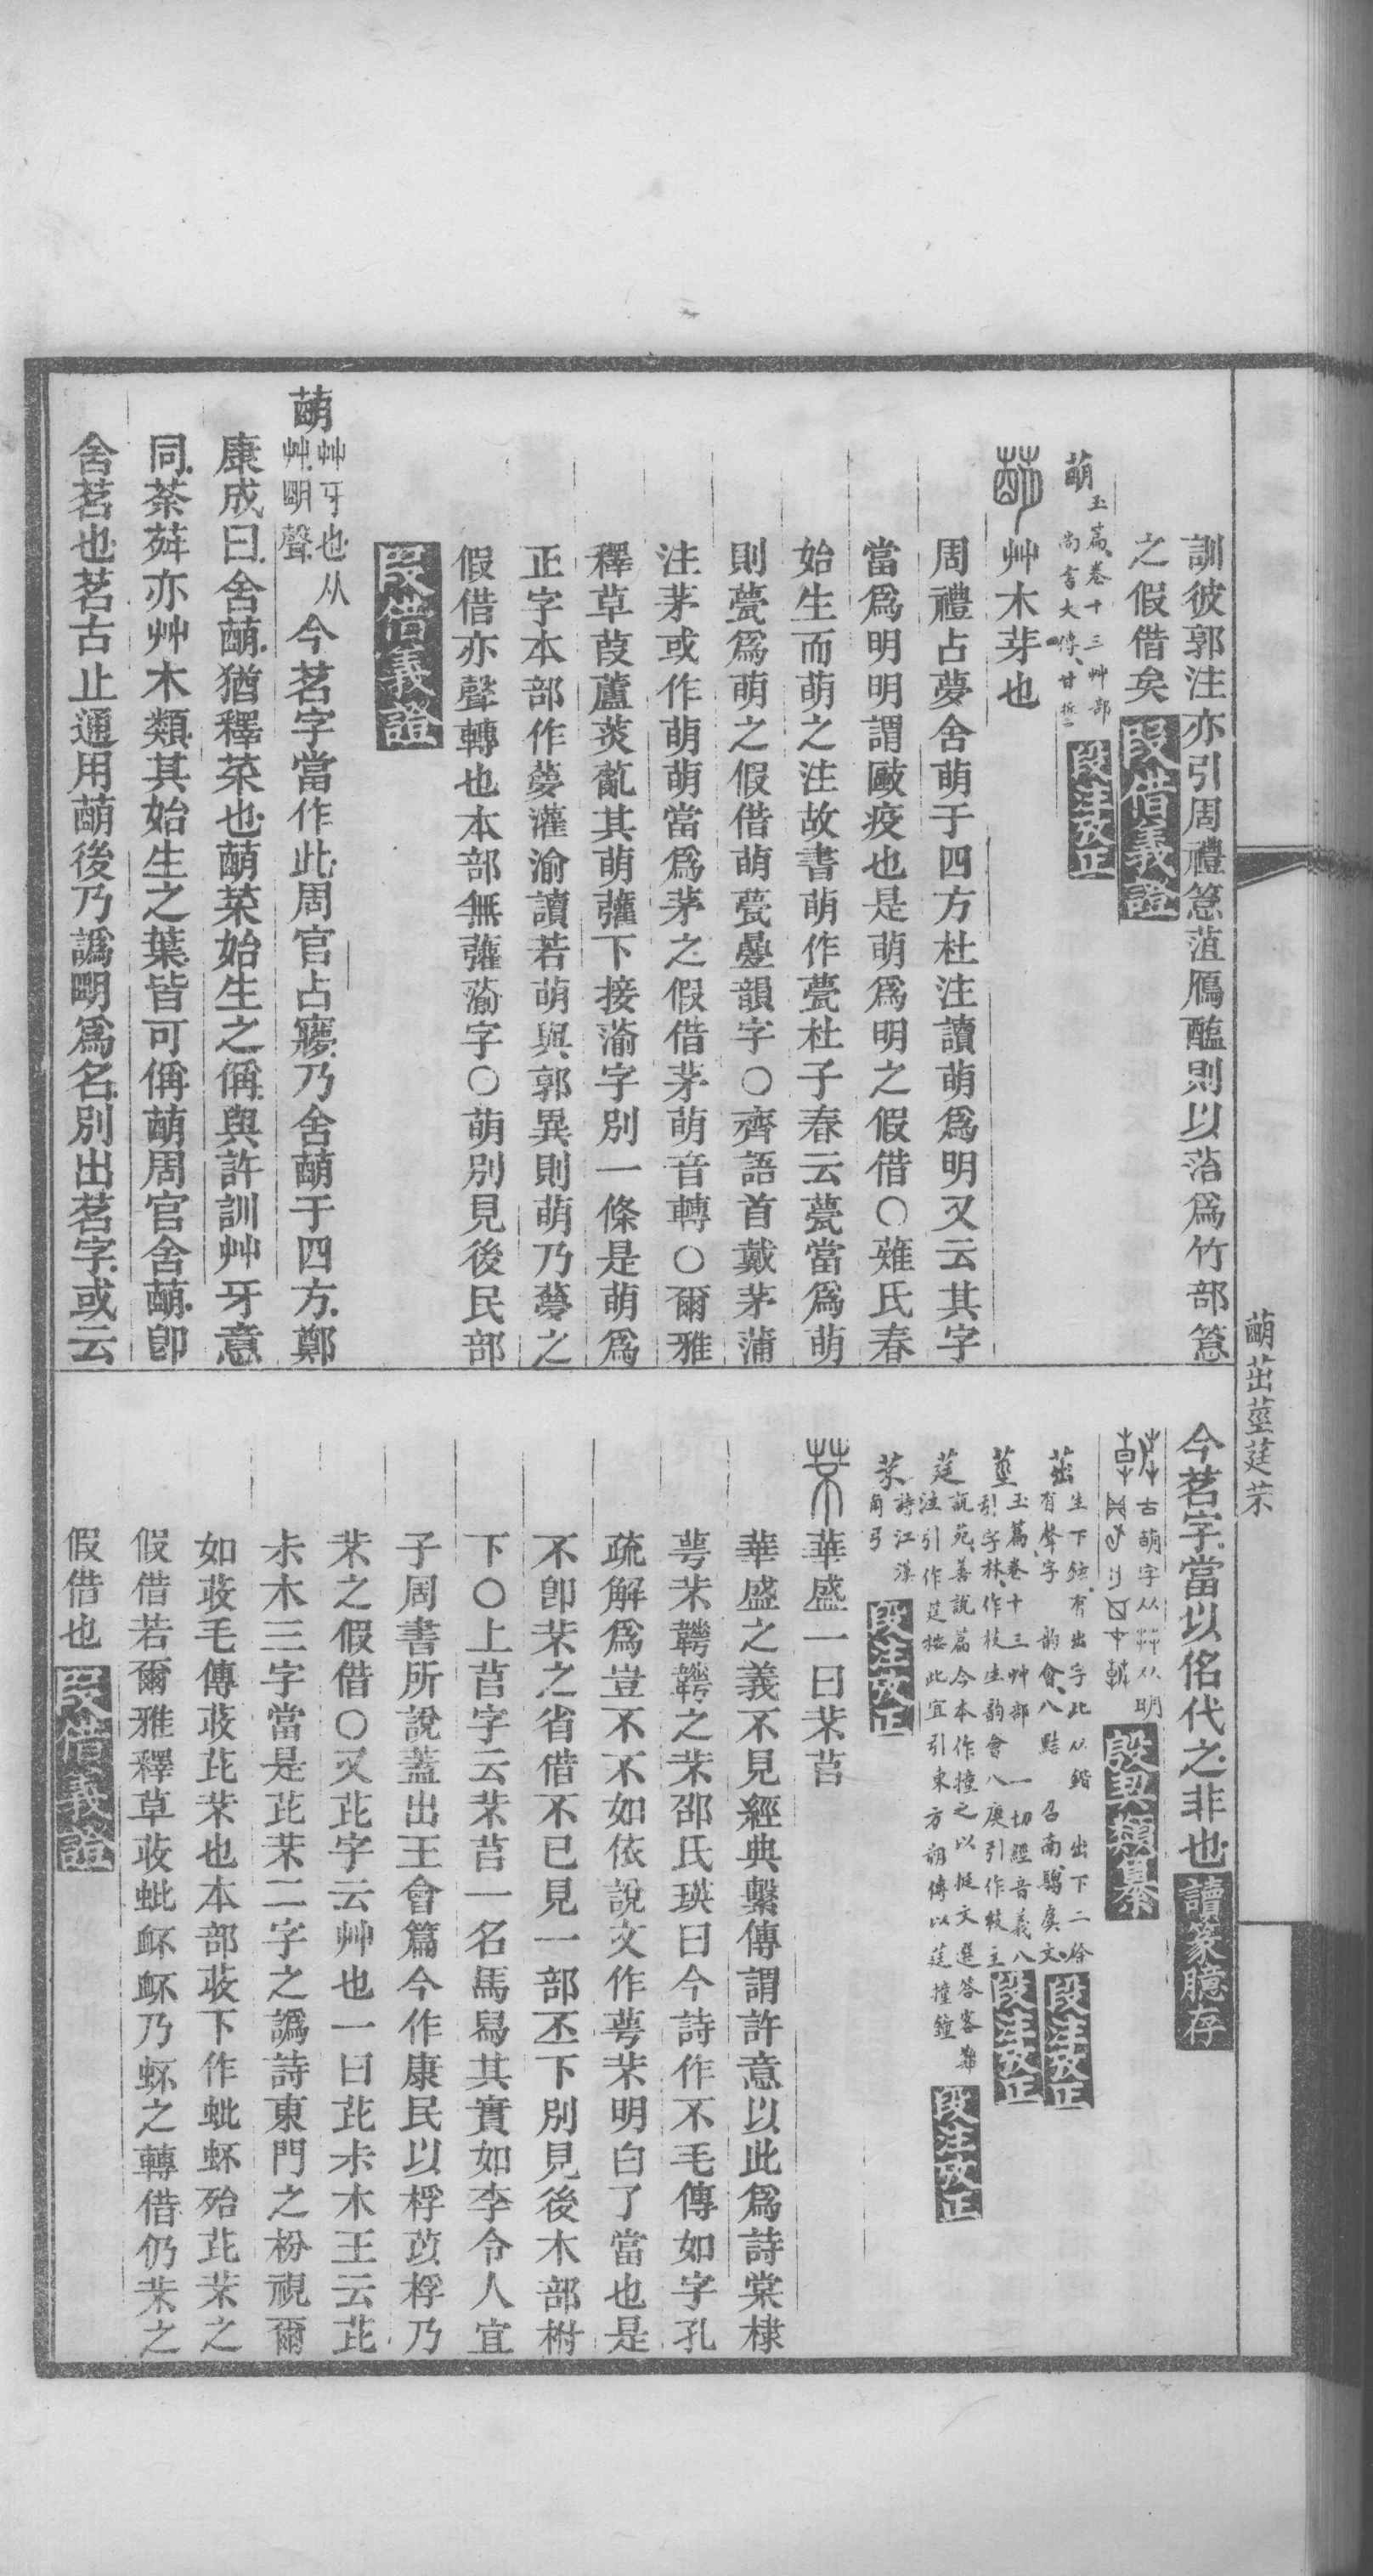 訓彼郭注亦引周禮箈菹鴈醢則以萡爲竹部箈
之假借矣 段借義證
萌 玉篇卷十三艸部
尚書大傳甘誓 段注攷正
艸木芽也
周禮占夢舍萌于四方杜注讀萌爲明又云其字
當爲明明謂敺疫也是萌爲明之假借〇薙氏春
始生而萌之注故書萌作甍杜子春云甍當爲萌
則甍爲萌之假借萌甍曡韻字〇齊語首戴茅蒲
注茅或作萌萌當爲茅之假借茅萌音轉〇爾雅
釋草葭蘆菼薍其萌虇下接蕍字別一條是萌爲
正字本部作夢灌渝讀若萌與郭異則萌乃夢之
假借亦聲轉也本部無虇蕍字〇萌別見後民部
段借義證
萌 艸牙也从
艸朙聲 今茗字當作此周官占寢乃舍萌于四方鄭
康成曰舍萌猶釋菜也萌菜始生之偁與許訓艸牙意
同荼荈亦艸木類其始生之葉皆可偁萌周官舍萌卽
舍茗也茗古止通用萌後乃譌朙爲名別出茗字或云
今茗字當以佲代之非也 讀篆臆存
古萌字从茻从明
段契類纂
茁 生下鉉有出字此从鍇 出下二徐
有聲字 韵會八黠 召南騶虞文 段注攷正
莖 玉篇卷十三艸部 一切經音義八
引字林作枝生韵會八庚引作枝主 段注攷正
莛 說苑善說篇今本作撞之以挺文選答客難
注引作莛按此宜引東方朔傳以莛撞鐘 段注攷正
芣 詩江漢
角弓 段注攷正
華盛一曰芣苢
華盛之義不見經典繫傳謂許意以此爲詩棠棣
萼芣韡韡之芣邵氏瑛曰今詩作不毛傳如字孔
疏解爲豈不不如依說文作萼芣明白了當也是
不卽芣之省借不已見一部丕下別見後木部柎
下〇上苢字云芣苢一名馬舄其實如李令人宜
子周書所說蓋出王會篇今作康民以桴苡桴乃
芣之假借〇又芘字云艸也一曰芘尗木王云芘
尗木三字當是芘芣二字之譌詩東門之枌視爾
如荍毛傳荍芘芣也本部荍下作蚍虾殆芘芣之
假借若爾雅釋草荍蚍衃衃乃蚽之轉借仍芣之
假借也 段借義證
萌茁莖莛芣